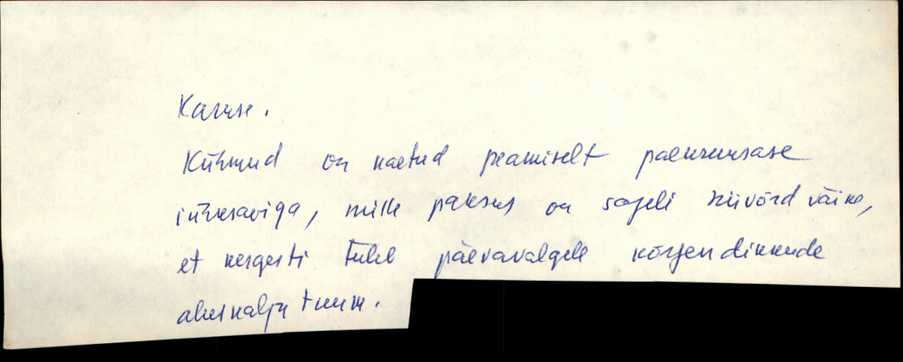 Karuse.
Kühmud on kaetud peamiselt paekruusase
ürksaviga, mille paksus on sageli niivõrd väike,
et kergesti tuleb päevavalgele kõrgendikkude
aluskalju tuum.